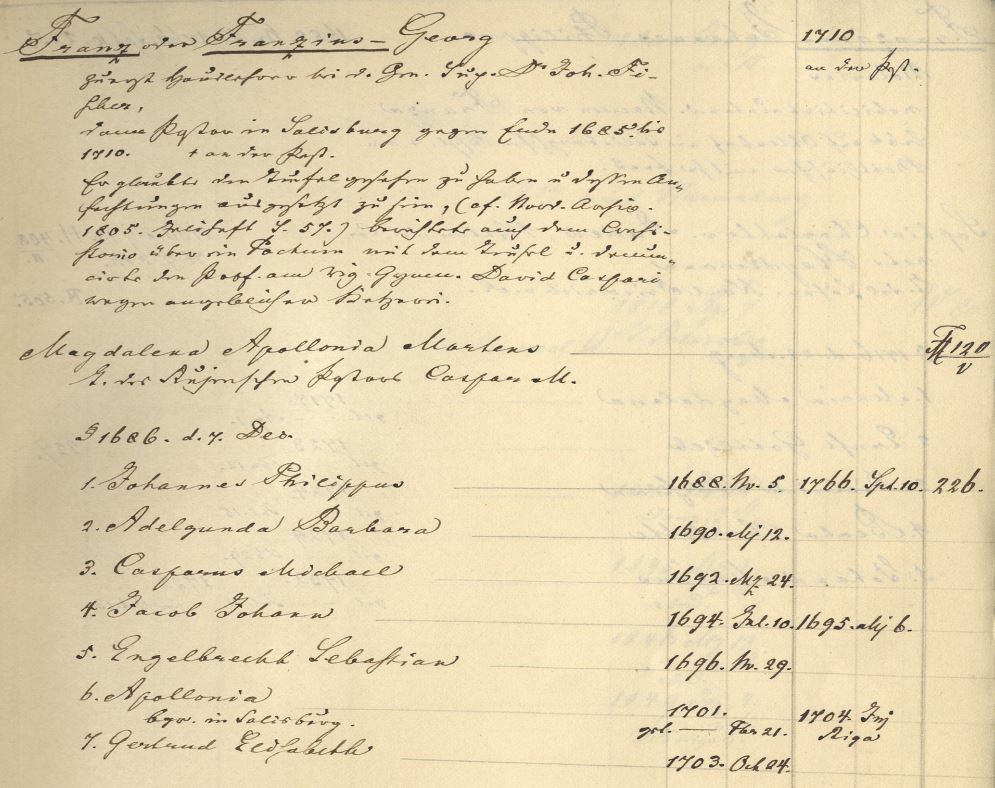 Franz oder Franzius - Georg 1710
zuerst Hauslehrer bei d. Gen. Sup. Dr Joh. Fi- an der Pest.
scher,
dann Pastor in Salisburg gegen Ende 1685 bis
1710. + an der Pest.
Er glaubte den Teufel gesehen zu haben u dessen An-
fechtungen ausgesetzt zu sein, (cf. Nord. Archiv.
1805. Juliheft S. 57.) berichtete auch dem Consi-
storio über ein Pactum mit dem Teufel u. denun-
cirte den Prof. am rig. Gymn. David Caspari
wegen angeblicher Ketzerei.
Magdalena Apollonia Martens 120
T. des Rujenschen Pastors Caspar M. V
1686. d. 7. Dec.
1. Johannes Philippus 1688. Nv. 5 1766. Spt. 10. 226.
2. Adelgunda Barbara 1690. Mj 12.
3. Casparus Michael 1692. Mz 24.
4. Jacob Johann 1694. Jul. 10. 1695. Mj 6.
5. Engelbrecht Sebastian 1696. Nv. 29.
6. Apollonia 1701. 1704 Jnj
bgr. in Salisburg. get. — Fbr 21. Riga
7. Gertrud Elisabeth 1703. Oct 24.